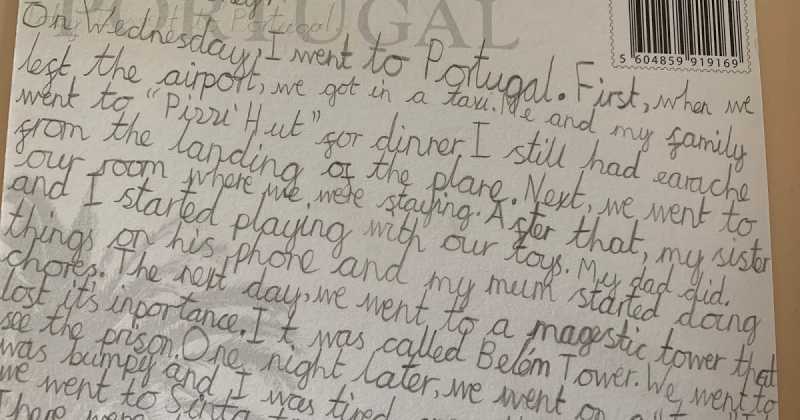 PORTUGAL
5 604859 919169
On Wednesday, I went to Portugal. First, when we
left the airport, we got in a taxi. Me and my family
went to "Pizzi Hut" for dinner I still had earache
from the landing of the plane. Next, we went to
our room where we were staying. After that, my sister
and I started playing with our toys. My dad did.
things on his phone and my mum started doing
chores. The next day, we went to a magestic tower that
lost it's inportance. It was called Belém Tower. We went to
see the prison. One night later, we went on a
was bumpy and I was tired
we went to Santa
There were